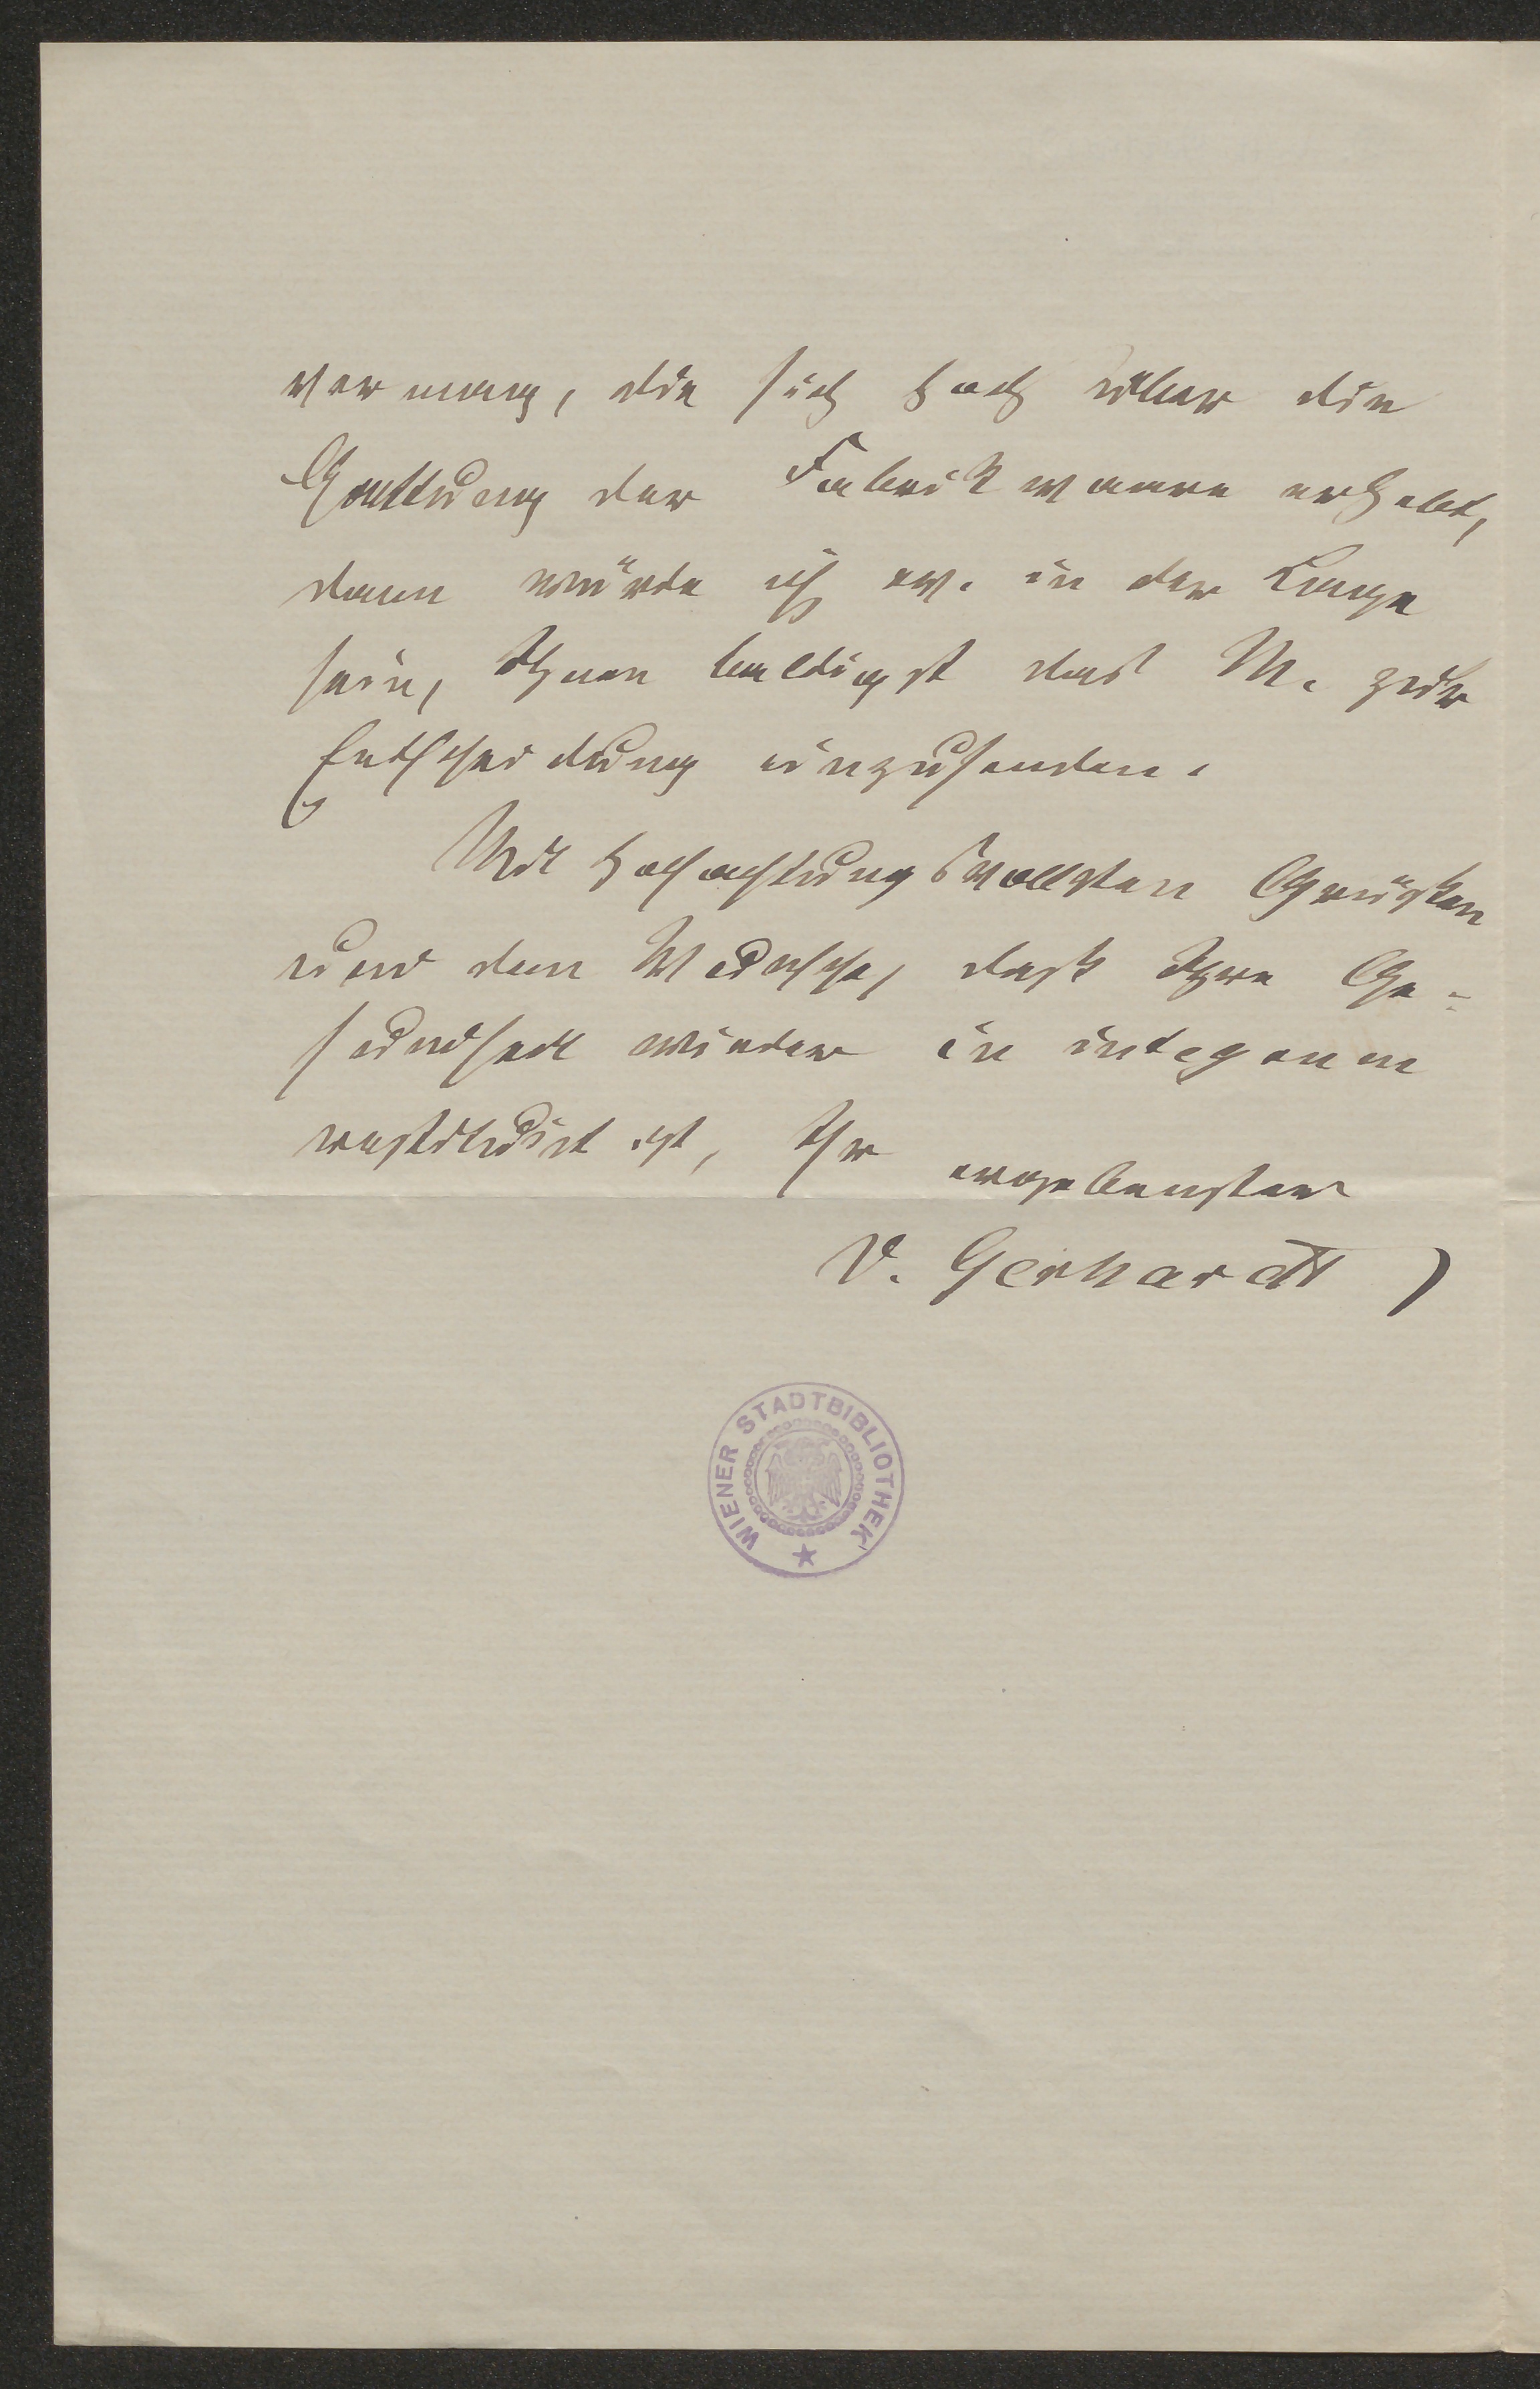 vermag, die sich hoch über die
Gattung der Fabrikwaare erhebt,
dann würde ich ev. in der Lage
sein, Ihnen baldigst das M. zur
Entscheidung einzusenden.
Mit hochachtungsvollsten Grüßen
und dem Wunsche, daß Ihre Ge-
sundheit wieder in integrum
restituirt ist, Ihr ergebenster
D. Gerhardt
WIENER STADTBIBLIOTHEK